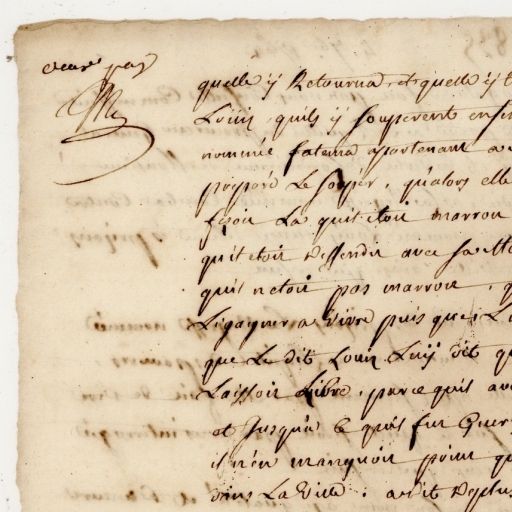 quelle y Retourna, et quelle y t
Louis, quils y souperent ens
nommée fatima apartenant a
preparé Le souper, qualors elle
fesoit La quil etoit marron
quil etoit deffendu avec sa
quil netoit pas marron, q
Ligagner a vivre puis que L
que Le dit Louis Luy dit q
Laissoit Libre, parce quil av
et Jusqu'a ce quil fut
il n'en manquoit point q
dans La Ville; a dit deplus